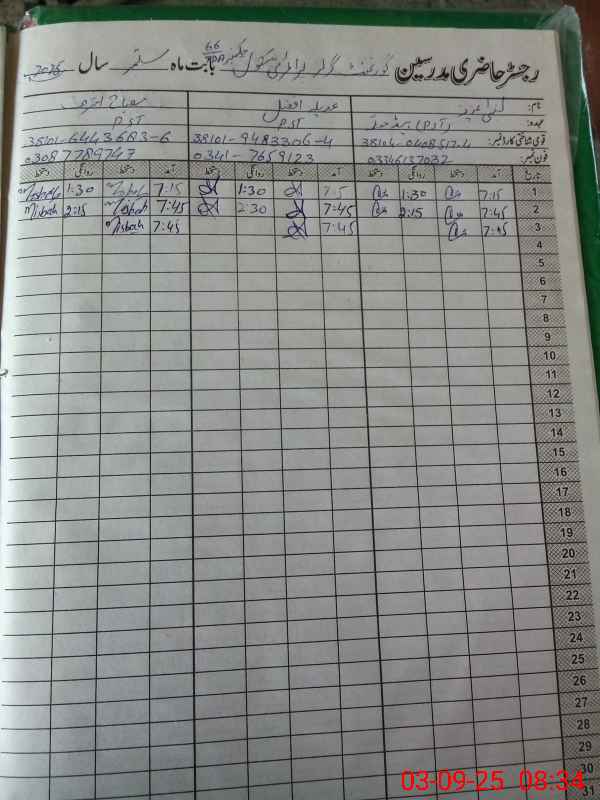 رجسٹر حاضری مدرسین گورنمنٹ گرلز پرائمری سکول چک نمبر 66 بابت ماہ ستمبر سال 2025
نام: لبنیٰ عزیز عدیلہ افضل مصباح اشرف
عہدہ: (PST) PST PST
قومی شناختی کارڈ نمبر: 38104-0408517-4 38101-9483306-4 38101-6443683-6
فون نمبر: 03346137032 0341-7659123 03087789747
تاریخ آمد دستخط روانگی دستخط آمد دستخط روانگی دستخط آمد دستخط روانگی دستخط
1 7:15 1:30 1:30 7:15 Misbah 1:30 Misbah
2 7:45 2:15 7:45 2:30 7:45 Misbah 2:15 Misbah
3 7:45 7:45 7:45 Misbah
4
5
6
7
8
9
10
11
12
13
14
15
16
17
18
19
20
21
22
23
24
25
26
27
28
29
30
31
03-09-25 08:34